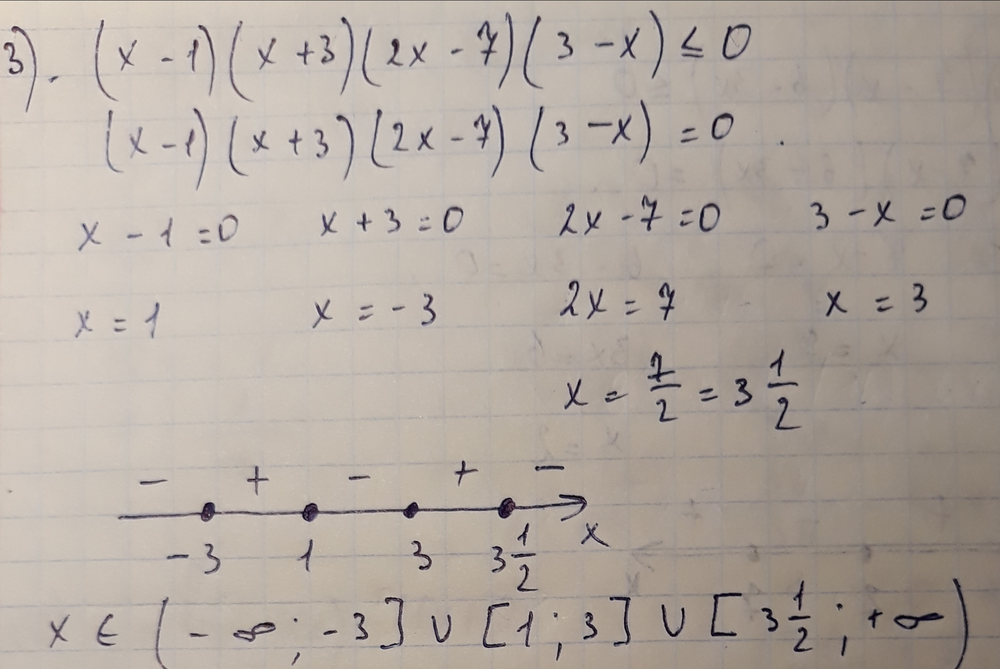 3). (x - 1)(x + 3)(2x - 7)(3 - x) ≤ 0
(x - 1)(x + 3)(2x - 7)(3 - x) = 0
x - 1 = 0 x + 3 = 0 2x - 7 = 0 3 - x = 0
x = 1 x = - 3 2x = 7 x = 3
x = 7/2 = 3 1/2
- + - + -
- 3 1 3 3 1/2 x
x ∈ (- ∞; - 3] ∪ [1; 3] ∪ [3 1/2; + ∞)